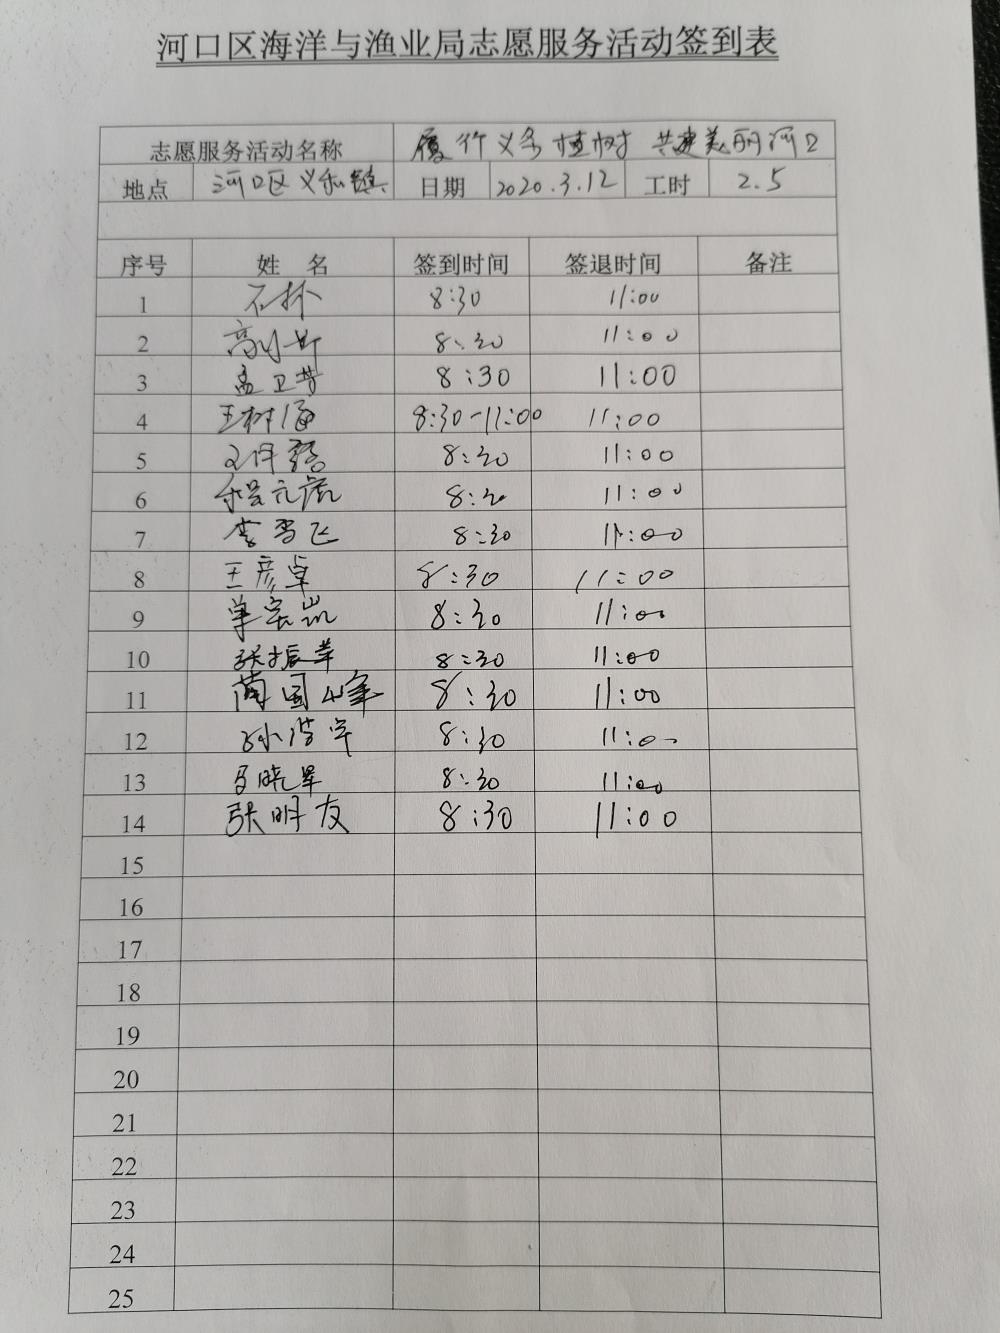 河口区海洋与渔业局志愿服务活动签到表
志愿服务活动名称 履行义务植树 共建美丽河口
地点 河口区义和镇 日期 2020.3.12 工时 2.5
序号 姓 名 签到时间 签退时间 备注
1 石林 8:30 11:00
2 8:30 11:00
3 孟卫芳 8:30 11:00
4 王树海 8:30-11:00 11:00
5 8:30 11:00
6 8:30 11:00
7 李雪飞 8:30 11:00
8 王彦卓 8:30 11:00
9 单宝岚 8:30 11:00
10 张振华 8:30 11:00
11 蔺国峰 8:30 11:00
12 孙浩宇 8:30 11:00
13 8:30 11:00
14 张明友 8:30 11:00
15
16
17
18
19
20
21
22
23
24
25